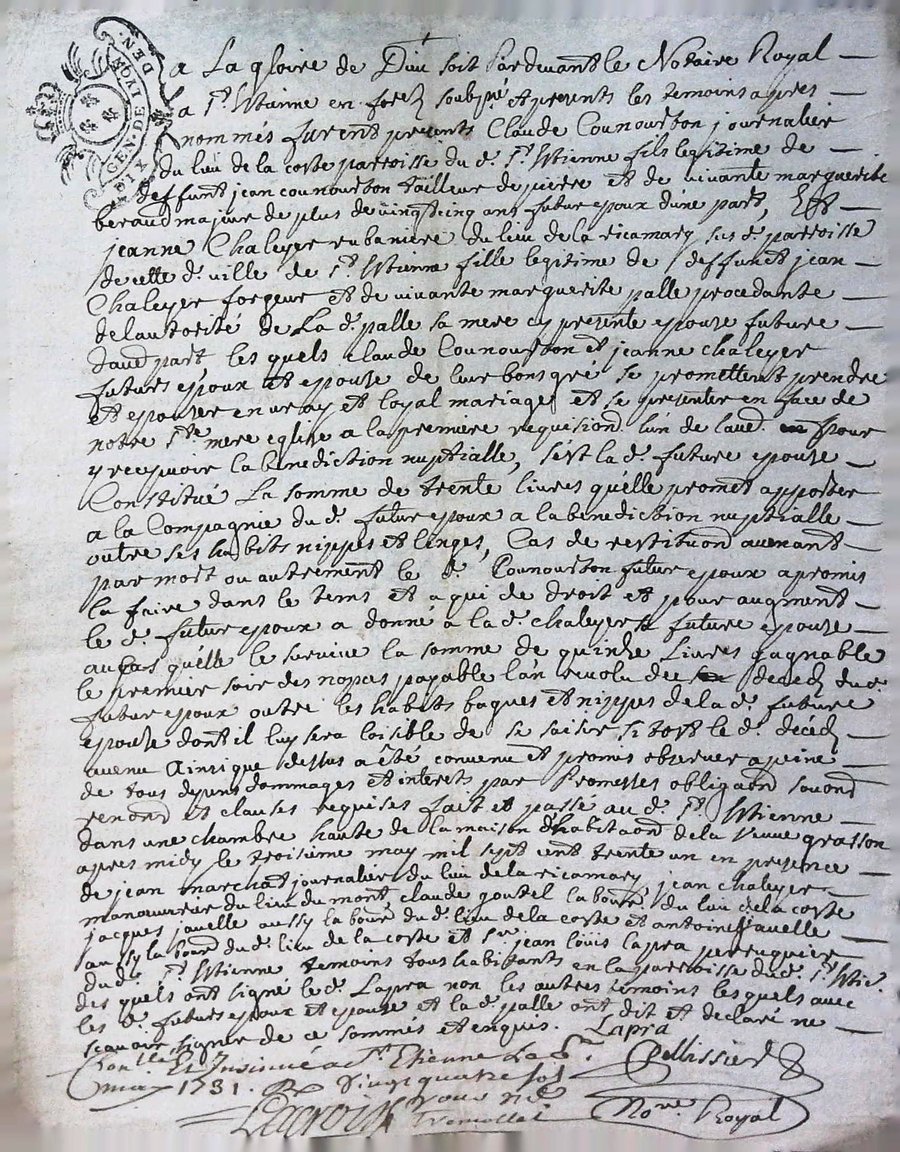 GEN. DE LYON
SIX DEN.
a La gloire de Dieu soit Pardevant le Notaire Royal
a St. Etienne en forez soubné et presents les temoins apres
nommés furent presents Claude Counourson journalier
du lieu de la coste parroisse du d. St. Etienne fils legitime de
deffunt jean counourson tailleur de pierre et de vivante marguerite
beraud majeur de plus de vingt cinq ans futur epoux d'une part, Et
jeanne Chaleyer rubaniere du lieu de la ricamary sus d. parroisse
de cette d. ville de St. Etienne fille legitime de deffunct jean
Chaleyer forgeur et de vivante marguerite palle procedante
de lautorité de La d. palle sa mere cy presente epouze future
daud. part, les quels claude Counourson et jeanne chaleyer
futurs epoux et epouze de leur bon gré se promettent prendre
et epouzer en vray et loyal mariage et se presenter en face de
notre ste. mere eglise a la premiere requisiond l'un de laud. pour
y recepvoir la benediction nuptialle, s'est la d. future epouze
Constitué La somme de trente livres qu'elle promet apporter
a la Compagnie du d. futur epoux a la benediction nuptialle
outre ses habits nippes et linges, Cas de restituond avenant
par mort ou autrement le d. Counourson futur epoux a promis
la faire dans le tems et a qui de droit et pour augment
le d. futur epoux a donné a la d. chaleyer sa future epouze
au cas qu'elle le survive la somme de quinze Livres gagnable
le premier soir des nopces payable l'an revolu du decedz dud.
futur epoux outre les habits bagues et nippes de la d. future
epouze dont il luy sera loisible de se saisir si tost le d. decedz
avenu Ainsi que dessus a êté convenu et promis observer a peine
de tous depens dommages et interets par Promesses obligaond souond
renond et clauses requises fait et passé au d. St. Etienne
dans une chambre haute de la maison d'habitaond de la veuve grasson
apres midy le troisieme may mil sept cent trente un en presence
de jean marchat journalier du lieu de la ricamary jean chaleyer
manoeuvrier du lieu du mont, claude goutel laboure. du lieu de la coste
jacques javelle aussy labour. du d. lieu de la coste et antoine javelle
aussy labour. du d. lieu de la coste et sr. jean loüis lapra perruquier
du d. St. Etienne temoins tous habitants en la parroisse du d. St. Etie.
des quels ont signé le d. Lapra non les autres temoins lesquels avec
les d. futurs epoux et epouze et la d. palle ont dit et declaré ne
scavoir signer de ce sommés et enquis. Lapra
Con.lle Et Insinué a St. Etienne Le 5.
may 1731. R. vingt quatre sols
Pellissier
Lacroix
Nore. Royal